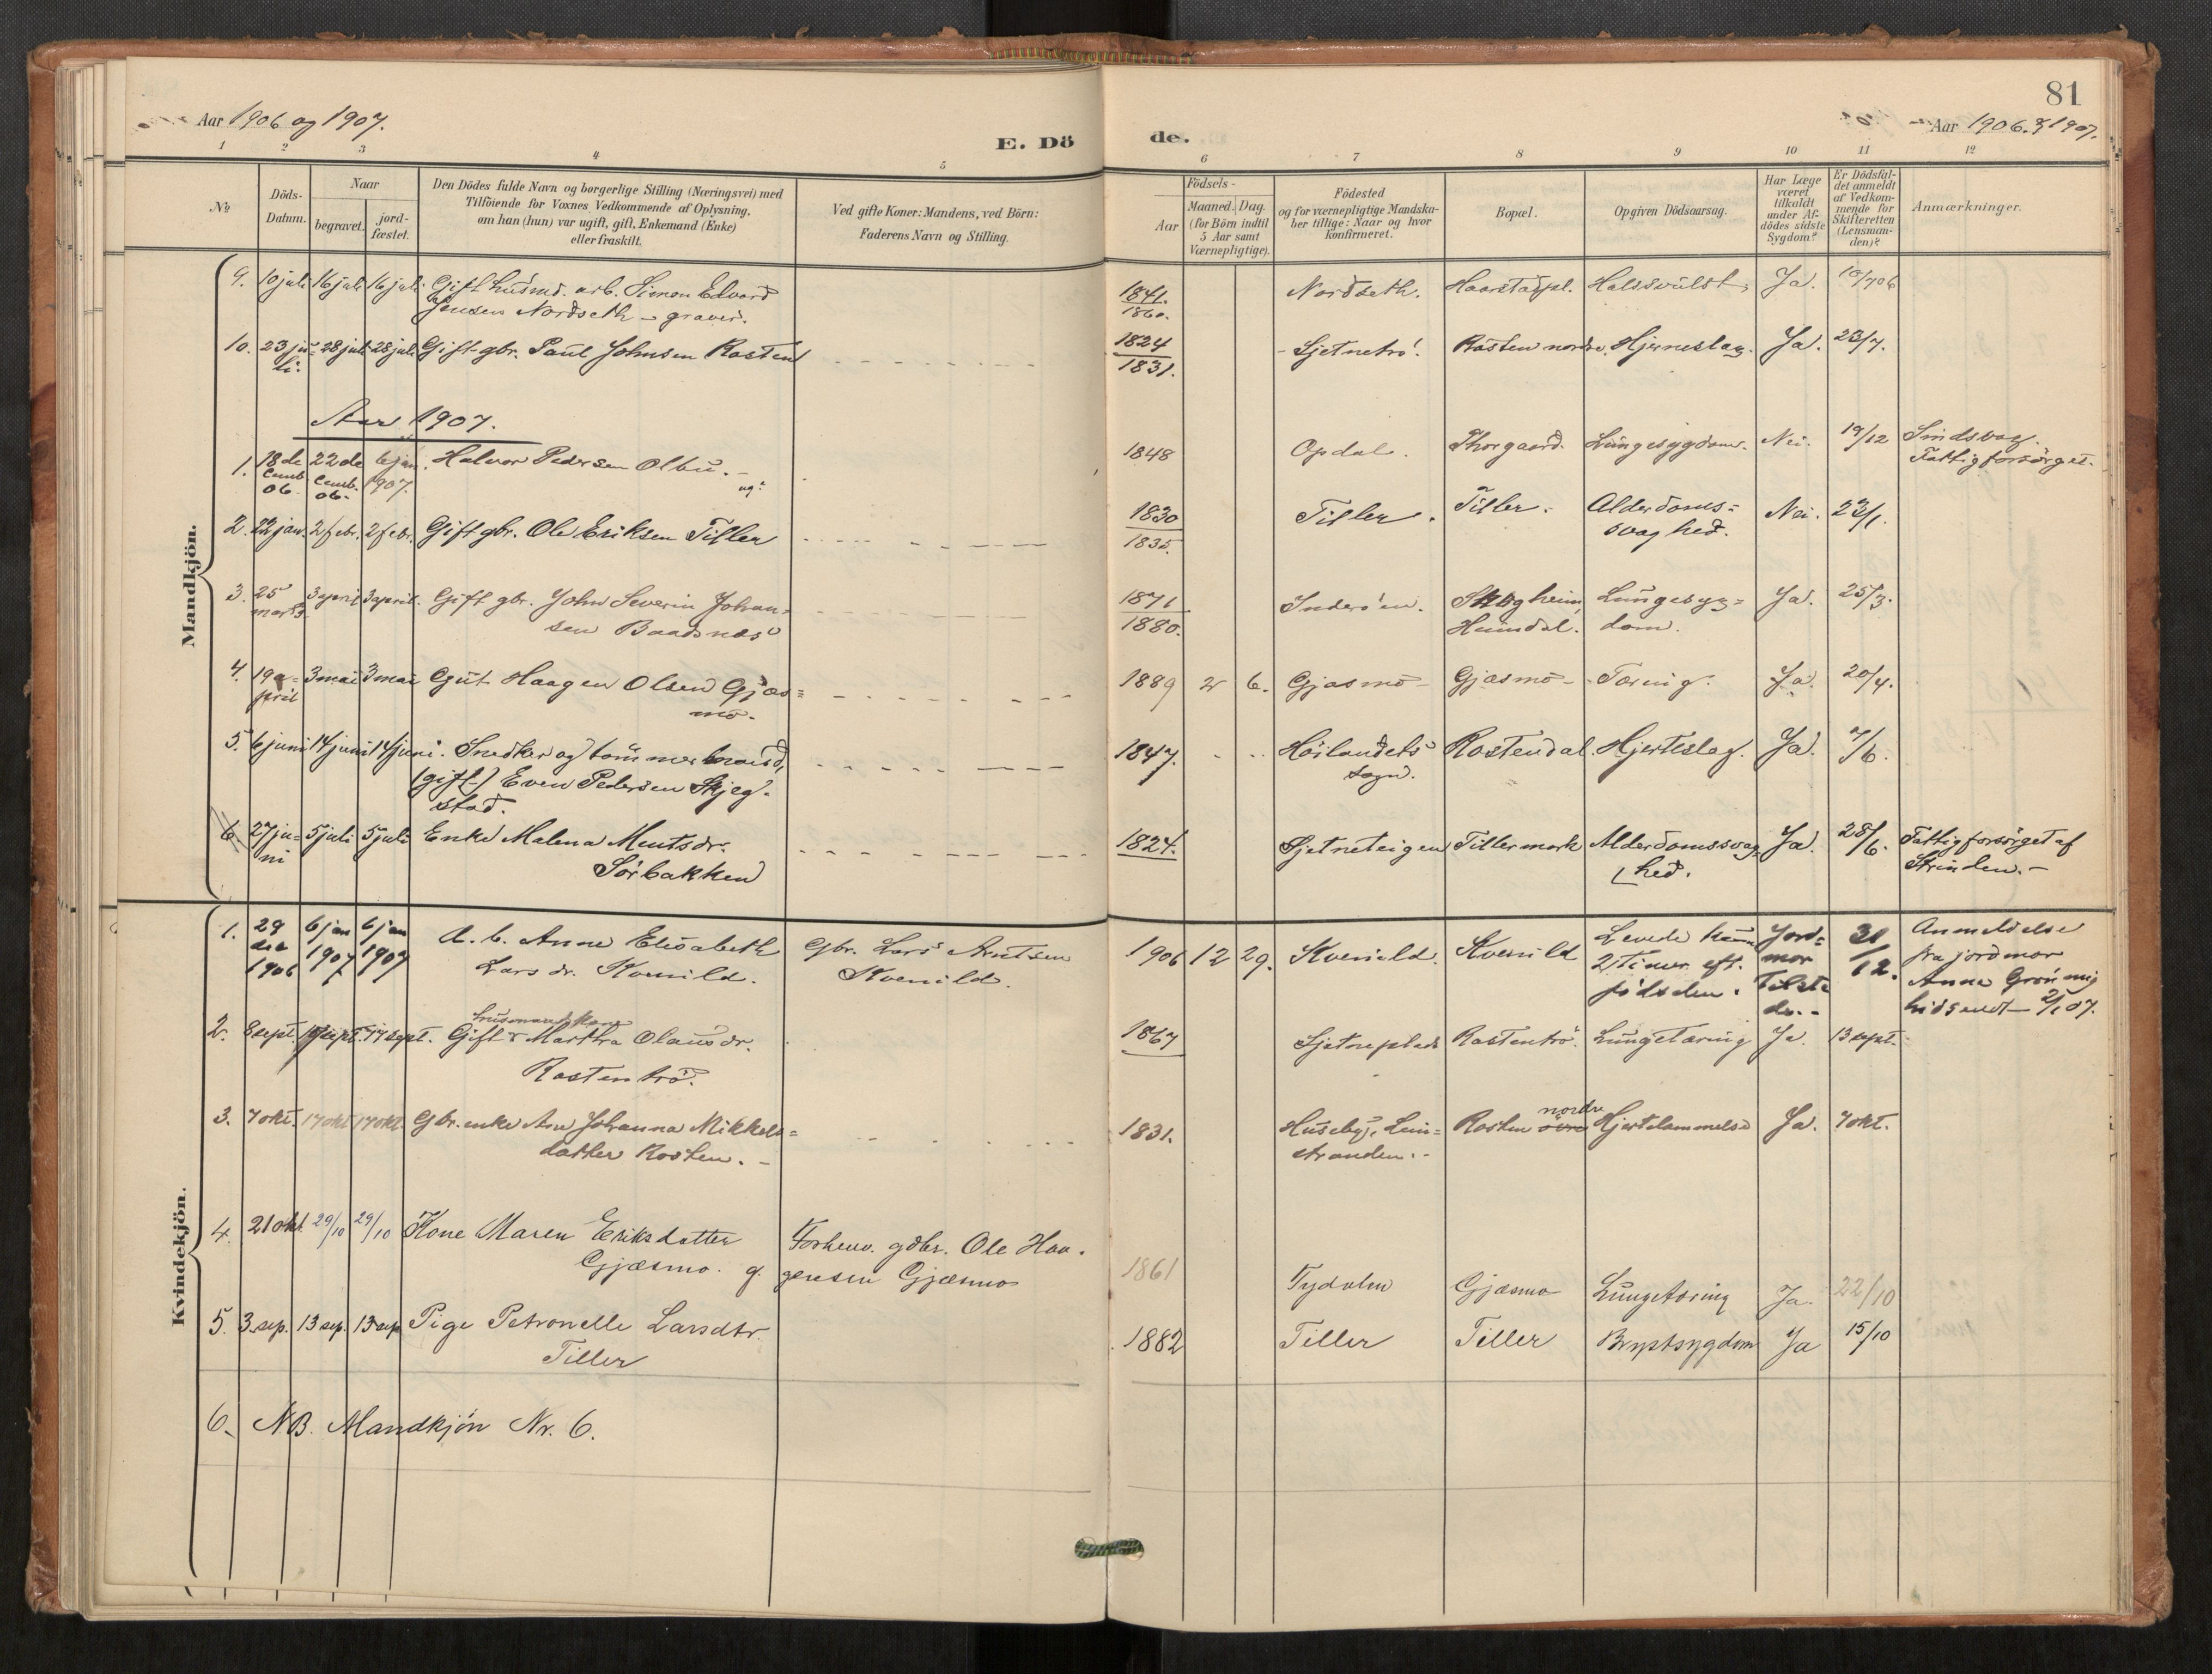 81
Aar 1906 og 1907.
E. Dö
de.
Aar 1906 & 1907.
1 2 3 4 5 6 7 8 9 10 11 12
№
Döds-
Datum.
Naar
begravet.
jord-
fæstet.
Den Dödes fulde Navn og borgerlige Stilling (Næringsvei) med
Tilföiende for Voxnes Vedkommende af Oplysning,
om han (hun) var ugift, gift, Enkemand (Enke)
eller fraskilt.
Ved gifte Koner: Mandens, ved Börn:
Faderens Navn og Stilling.
Födsels-
Aar
Maaned. Dag.
(for Börn indtil
5 Aar samt
Værnepligtige).
Födested
og for værnepligtige Mandska-
ber tillige: Naar og hvor
konfirmeret.
Bopæl.
Opgiven Dödsaarsag.
Har Læge
været
tilkaldt
under Af-
dödes sidste
Sygdom?
Er Dödsfal-
det anmeldt
af Vedkom-
mende for
Skifteretten
(Lensman-
den)?
Anmærkninger.
Mandkjön.
9. 10 juli 16 juli 16 juli Gift husmd. arb. Simon Edvard 1841. Nordseth. Haarstadpl. Halssvülst, Ja. 10/7 06
Jensen Nordseth - graver. 1860.
10. 23 ju= 28 juli 28 juli Gift gbr. Paul Johnsen Rosten 1824 Sjetnetrö. Rosten nordre. Hjerneslag. Ja. 23/7.
li. 1831.
Aar 1907.
1. 18 de 22 de 6 jan. Halvor Pedersen Olbu. - 1848 Opdal. Thorgaard. Lungesygdom. Nei. 19/12 Sindsvag.
cemb cemb. 1907. ug. Fattigforsörget.
06. 06.
2. 22 jan. 2 febr. 2 febr. Gift gbr. Ole Eriksen Tiller 1830 Tiller. Tiller. Alderdoms= Nei. 23/1.
1835. svaghed.
3. 25 3 april 3 april. Gift gbr. John Severin Johan= 1871 Inderöen. Skogheim, Lungesyg= Ja. 25/3.
marts sen Baadsnæs 1880. Heimdal. dom.
4. 19 a= 3 mai 3 mai Gut Haagen Olsen Gjæs= 1889 2 6. Gjæsmo - Gjæsmo - Tæring. Ja. 20/4.
pril mo.
5. 6 juni 14 juni 14 juni. Snedker og tömmermand, 1847. Höilandets Rostendal. Hjerteslag. Ja. 7/6.
(gift) Even Pedersen Skjeg= sogn.
stad.
6. 27 ju= 5 juli 5 juli Enke Malena Mentsdr. 1824. Sjetneteigen Tillermark Alderdomssvag Ja. 28/6. Fattigforsörget af
ni Sörbakken hed. Strinden. -
Kvindekjön.
1. 29 6 jan 6 jan d. b. Anne Elisabeth Gbr. Lars Arntsen 1906 12 29. Kvenild. Kvenild Levede kun Jord= 31/12. Anmeldelse
dec 1907 1907 Lars dr. Kvenild. Kvenild. 2 Timer eft. mor fra jordmor
1906 födselen. tilste Anna Gröning
de. - hidsendt - 2/1 07.
husmandskone
2. 8 sept. 17 sept. 17 sept. Gift Martha Olausdr. 1867 Sjetneplads Rostentrö. Lungetæring Ja. 13 sept. -
Rostentrö.
3. 7 okt. 17 okt. 17 okt Gbr. enke Ane Johanna Mikkels= 1831. Huseby, Lein= Rosten nordre Hjertelammelse Ja. 7 okt.
datter Rosten. - stranden. -
4. 21 okt. 29/10 29/10 Kone Maren Eriksdatter Forhenv. gdbr. Ole Haa-
Gjæsmo. g. gensen Gjæsmo 1861 Tydalen Gjæsmo Lungetæring Ja. 22/10
5. 3. sep. 13 sep. 13 sep Pige Petronelle Larsdtr. 1882 Tiller Tiller Brystsygdom Ja 15/10
Tiller
6. NB. Mandkjön Nr. 6.